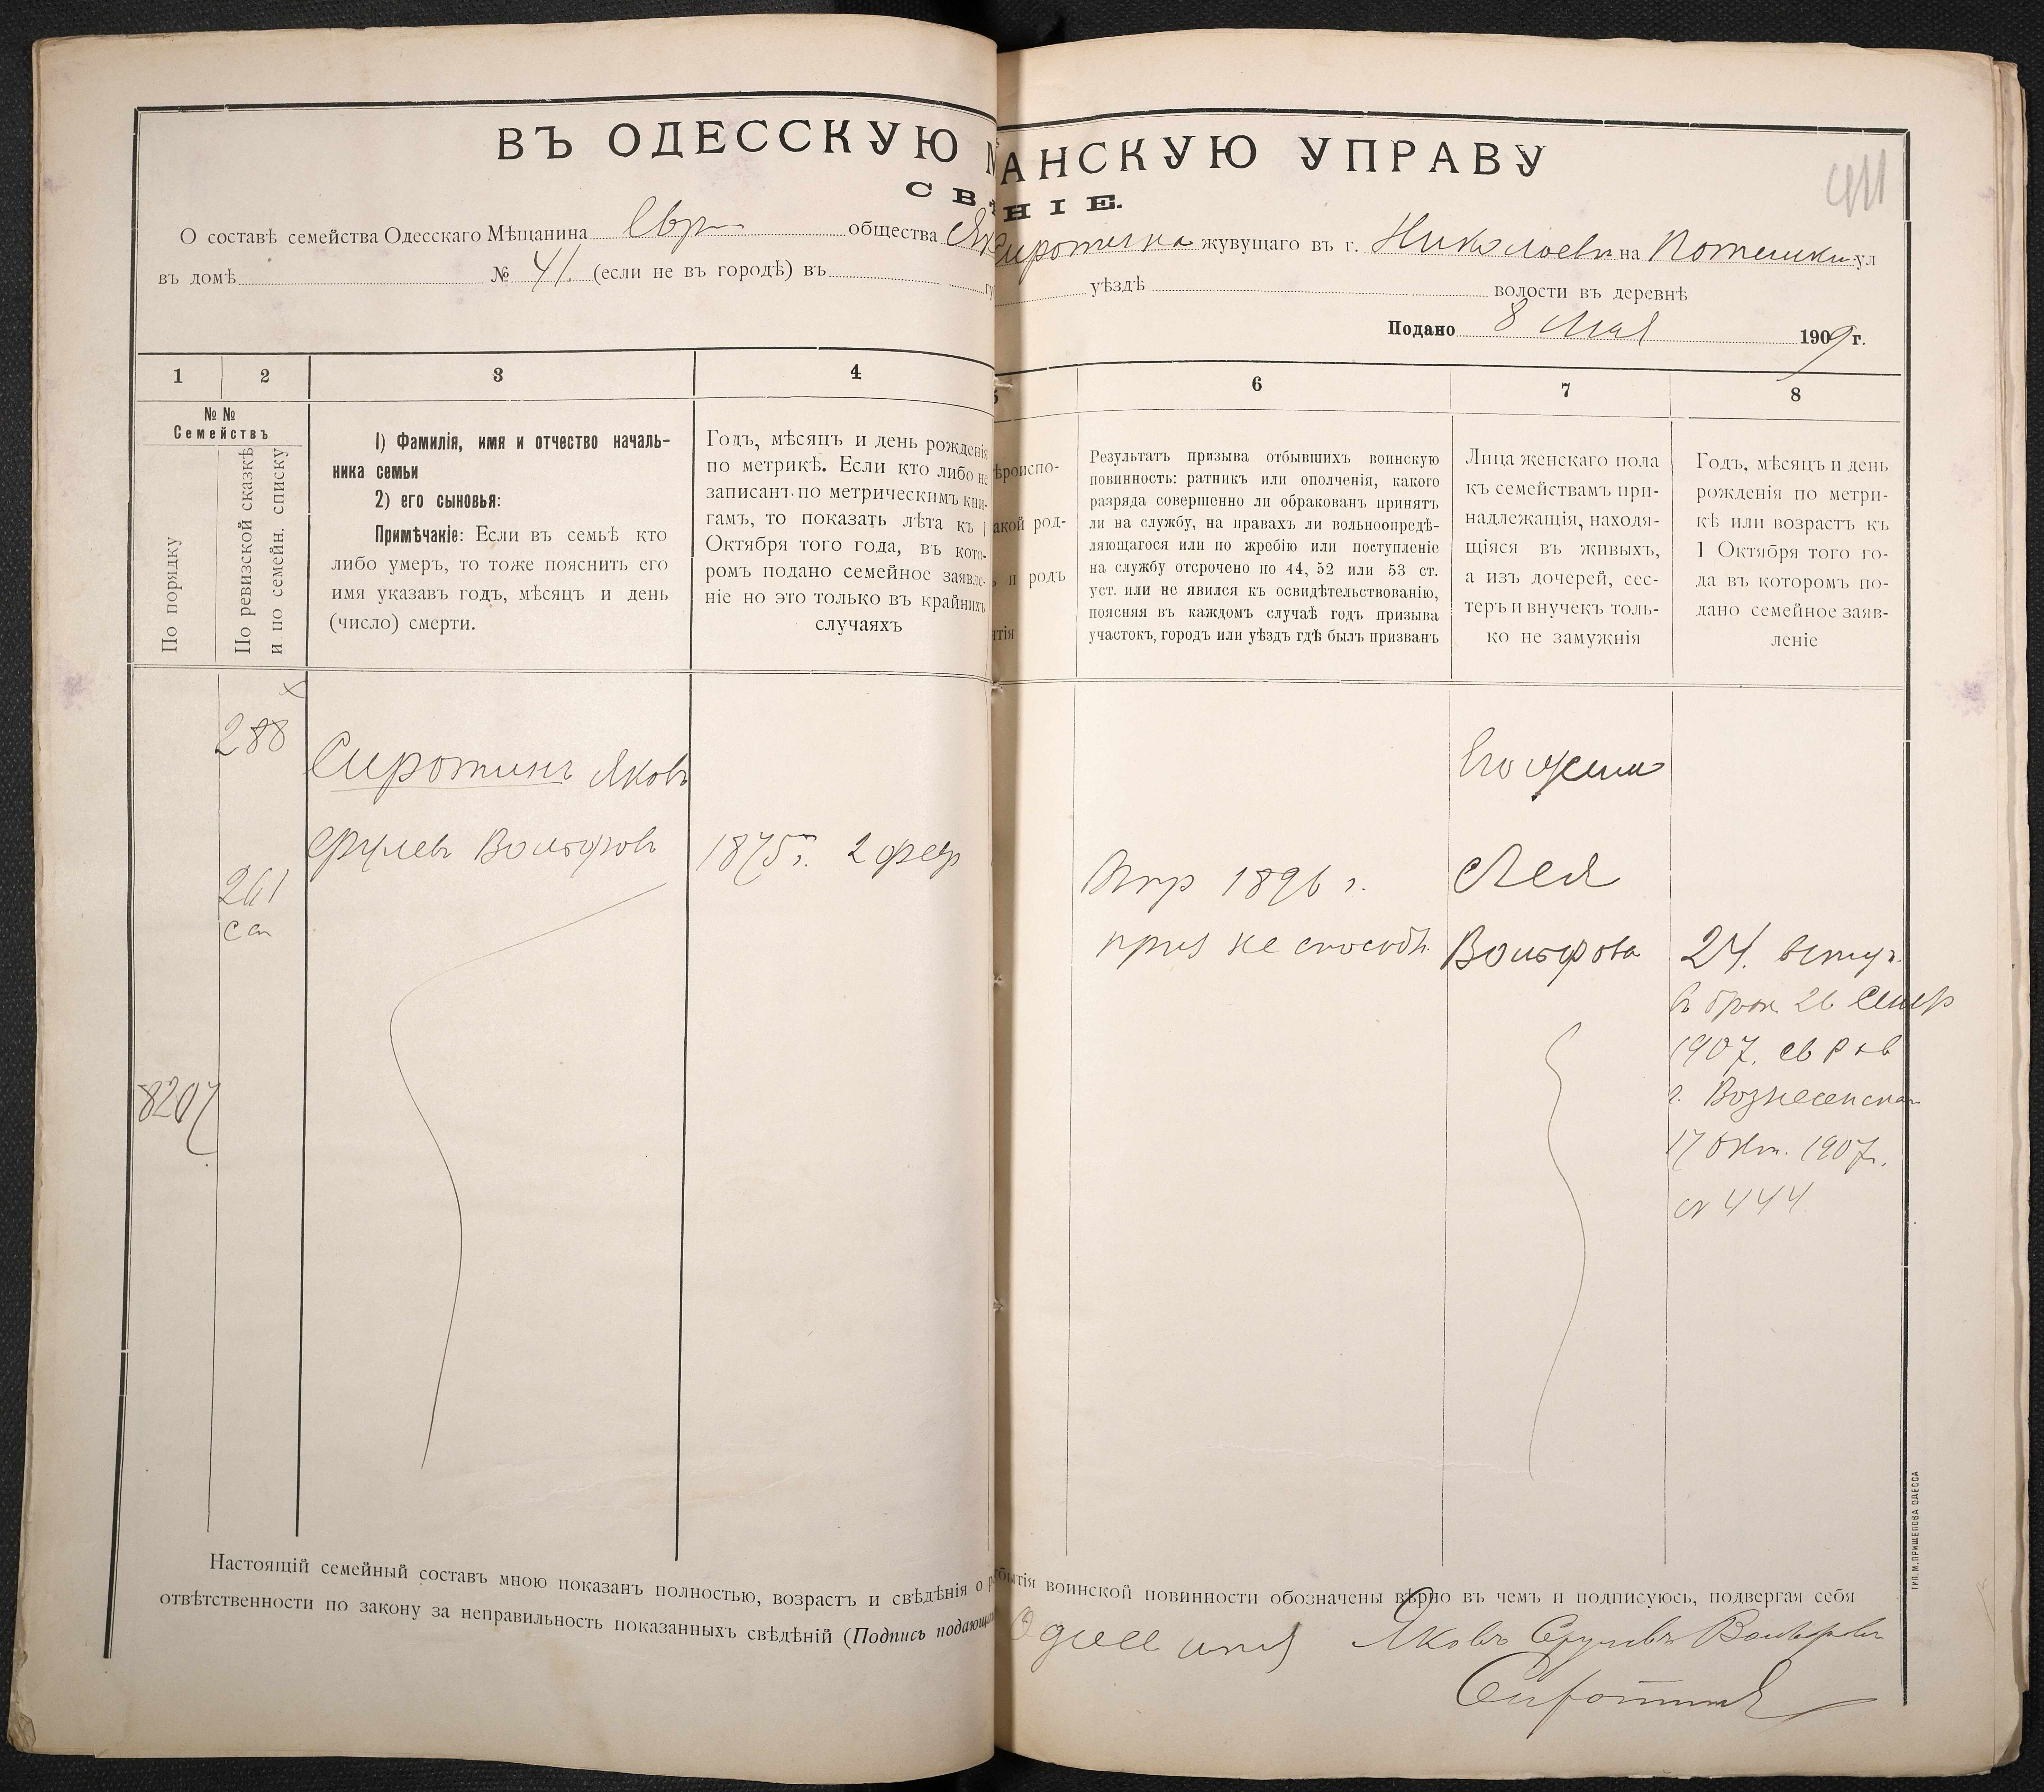 ВЪ ОДЕССКУЮ М АНСКУЮ УПРАВУ
СВѢ НІЕ.
411
О составѣ семейства Одесскаго Мѣщанина Евр общества Як Сиротина жувущаго въ г. Николаевѣ на Потемкин ул
въ домѣ № 41. (если не въ городѣ) въ гу уѣздѣ волости въ деревнѣ
Подано 8 Мая 1909 г.
1 2 3 4 5 6 7 8
№№ Семействъ
По порядку
По ревизской сказкѣ и по семейн. списку
1) Фамилія, имя и отчество началь-
ника семьи
2) его сыновья:
Примѣчакіе: Если въ семьѣ кто
либо умеръ, то тоже пояснить его
имя указавъ годъ, мѣсяцъ и день
(число) смерти.
Годъ, мѣсяцъ и день рожденія
по метрикѣ. Если кто либо не
записанъ по метрическимъ кни-
гамъ, то показать лѣта къ 1
Октября того года, въ кото-
ромъ подано семейное заявле-
ніе но это только въ крайнихъ
случаяхъ
ѣроиспо-
акой род-
ъ и родъ
ятія
Результатъ призыва отбывшихъ воинскую
повинность: ратникъ или ополченія, какого
разряда совершенно ли обракованъ принятъ
ли на службу, на правахъ ли вольноопредѣ-
ляющагося или по жребію или поступленіе
на службу отсрочено по 44, 52 или 53 ст.
уст. или не явился къ освидѣтельствованію,
поясняя въ каждомъ случаѣ годъ призыва
участокъ, городъ или уѣздъ гдѣ былъ призванъ
Лица женскаго пола
къ семействамъ при-
надлежащія, находя-
щіяся въ живыхъ,
а изъ дочерей, сес-
теръ и внучекъ толь-
ко не замужнія
Годъ, мѣсяцъ и день
рожденія по метри-
кѣ или возрастъ къ
1 Октября того го-
да въ которомъ по-
дано семейное заяв-
леніе
288
Сиротинъ Яковъ
Срулевъ Вольфовъ
1875 г. 2 февр
261
сп
8207
Пр 1896 г.
приз не способн.
Его жена
Лея
Вольфова
24. вступ.
въ брак 26 Сент
1907. св Рав
г. Вознесенска
17 Окт. 1907 г.
№ 444
Настоящій семейный составъ мною показанъ полностью, возрастъ и свѣдѣнія о р бытія воинской повинности обозначены вѣрно въ чемъ и подписуюсь, подвергая себя
отвѣтственности по закону за неправильность показанныхъ свѣдѣній (Подпись подающа Яковъ Срулевъ Вольфовъ
Сиротинъ
ТИП. М. ПРИЩЕПОВА ОДЕССА